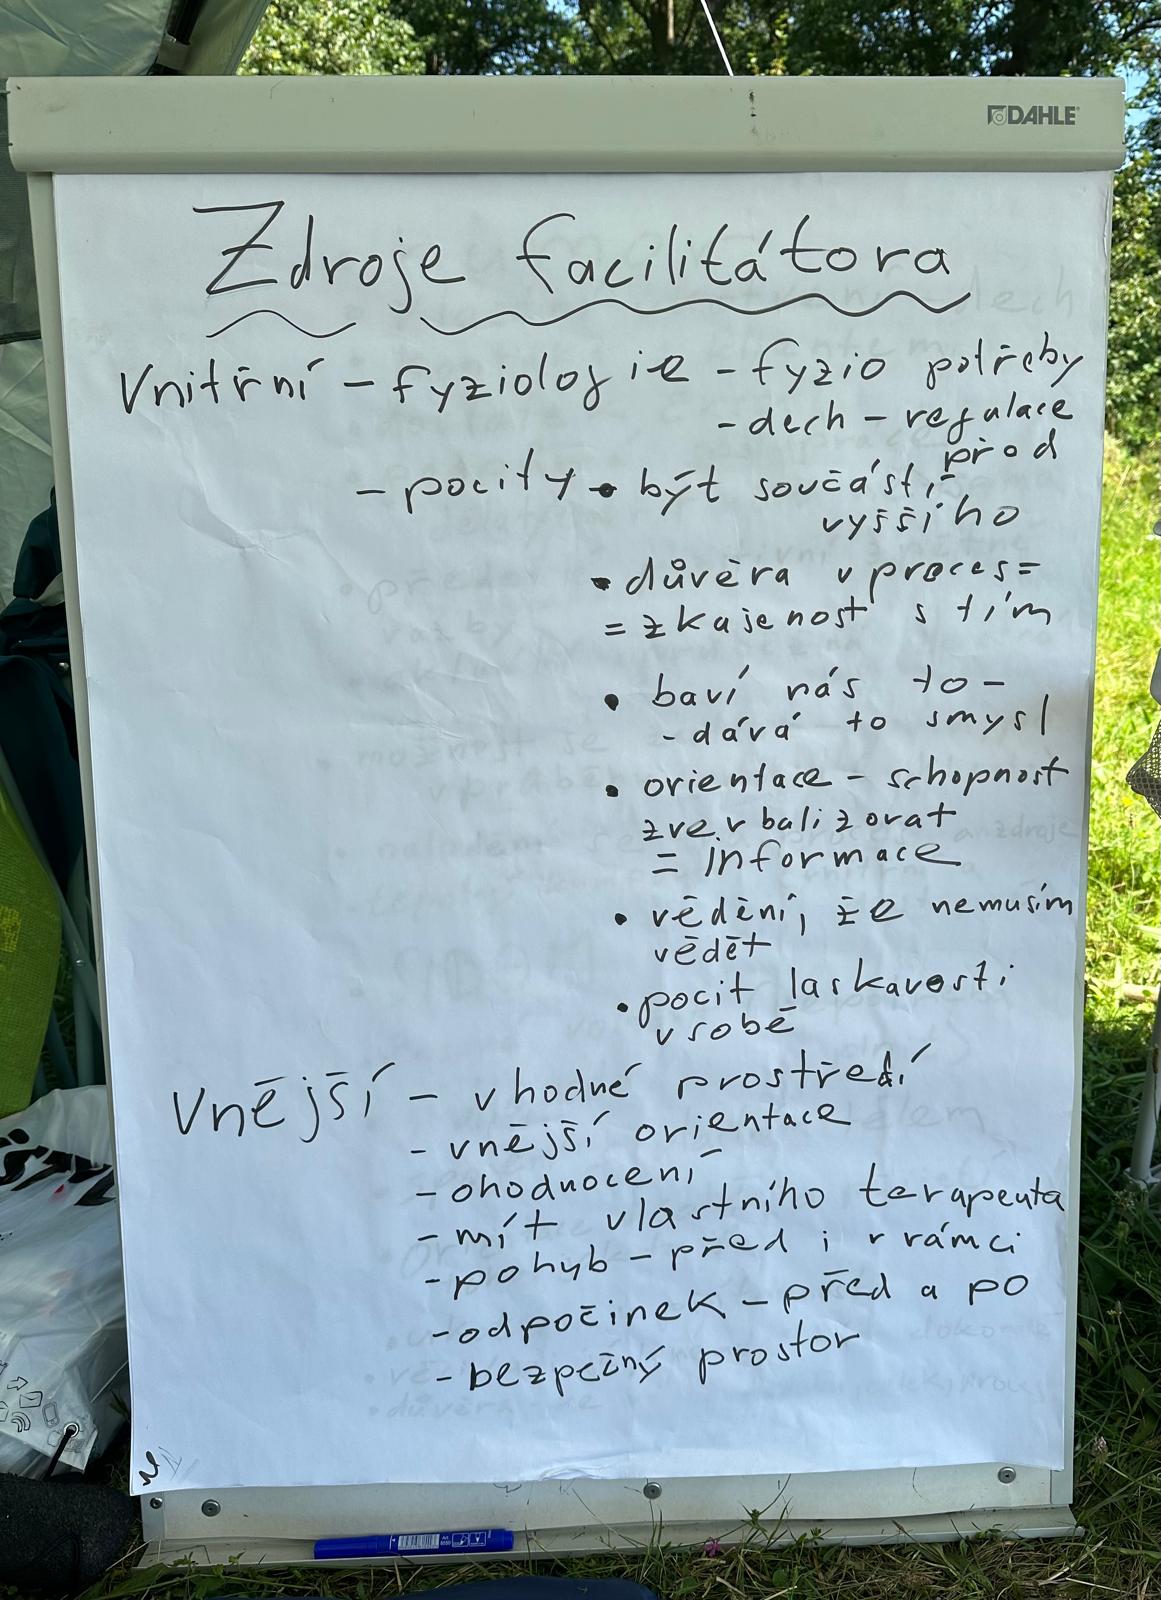 DAHLE
Zdroje facilitátora
Vnitřní – fyziologie – fyzio potřeby
– dech – regulace
před
– pocity • být součástí
vyššího
• důvěra v proces =
= zkajenost s tím
• baví nás to –
– dává to smysl
• orientace – schopnost
zverbalizovat
= informace
• vědění, že nemusím
vědět
• pocit laskavosti
v sobě
Vnější – vhodné prostředí
– vnější orientace
– ohodnocení
– mít vlastního terapeuta
– pohyb – před i v rámci
– odpočinek – před a po
– bezpečný prostor